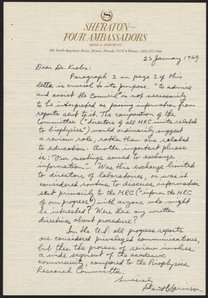 SHERATON–
FOUR AMBASSADORS
22 January 1969
Dear Dr. Krebs:
Paragraph 2 on page 2 of this
letter is crucial to its purpose. "to advise
and assist the Council" is not necessarily
to be interpreted as passing information from
reports sent to it. The composition of the
committee ("directors of all MRC units related
to biophysics") would ordinarily suggest
a review role, rather than one related
to education. Another important phrase
is: "Our meetings served to exchange
information". Was this exchange limited
to directors of laboratories, or was it
considered routine to discuss information
sent primarily to the MRC ("inform the MRC
of our progress") with anyone who might
be interested? Was there any written
directive about procedure?
In the U.S. all progress reports
are considered privileged communications,
but then the process of review involves
a wide segment of the academic
community, compared to the Biophysics
Research Committee.
Sincerely,